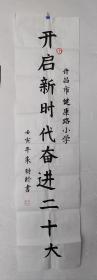 许昌市健康路小学
开启新时代奋进二十大
壬寅年朱